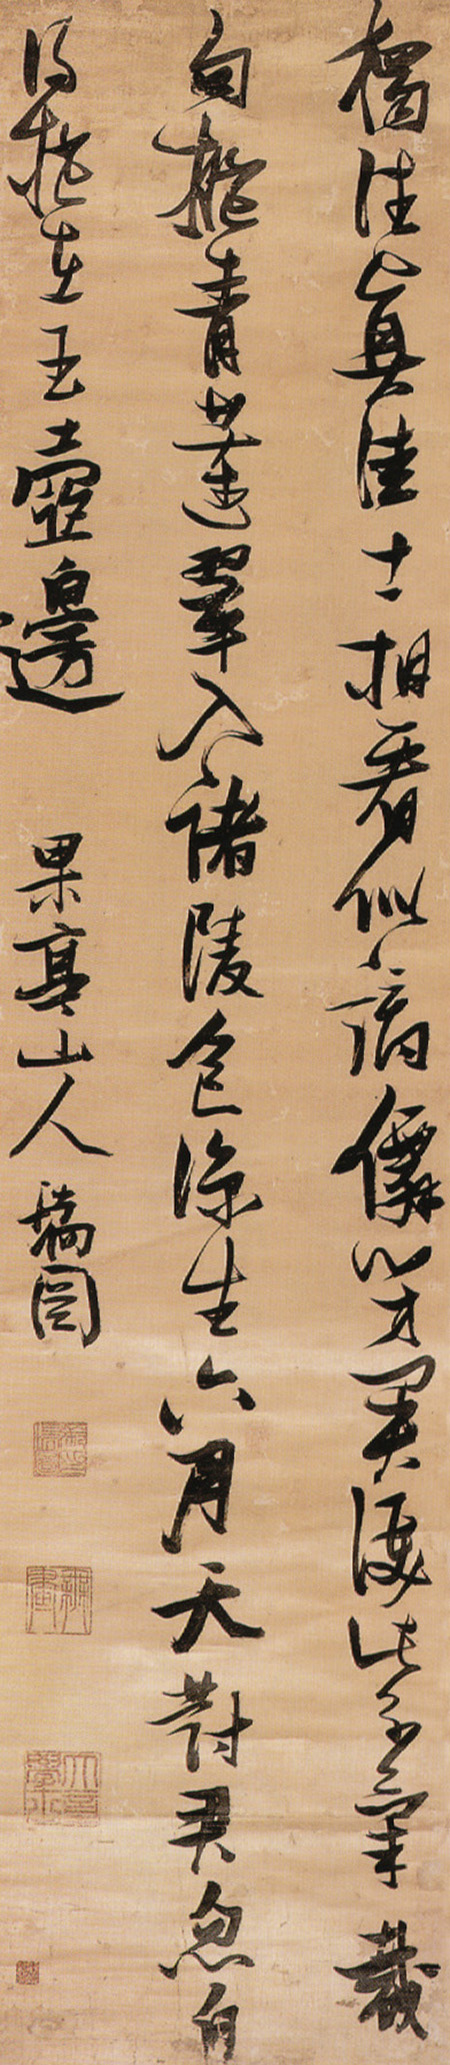 獨往真佳士相看似謫僊才復此裁
句擬青蓮翠入諸陵色涼生六月天對君忽自
得挹在玉壺邊 果亭山人瑞圖